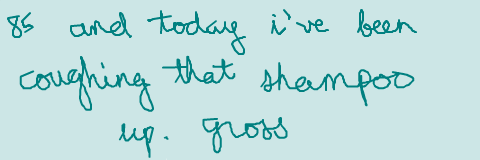 85 and today i've been
coughing that shampoo
up. gross